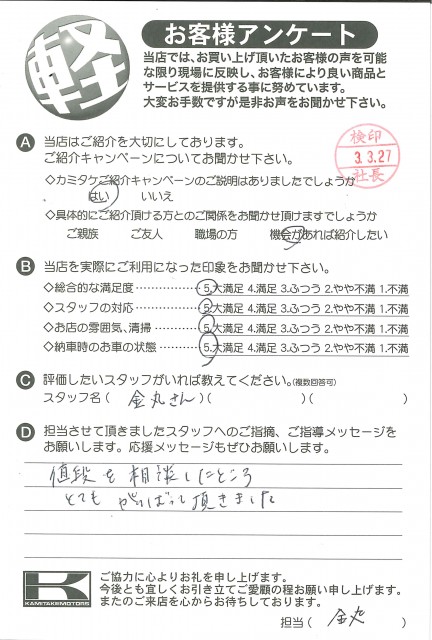 軽
お客様アンケート
当店では、お買い上げ頂いたお客様の声を可能
な限り現場に反映し、お客様により良い商品と
サービスを提供する事に努めています。
大変お手数ですが是非お声をお聞かせ下さい。
A 当店はご紹介を大切にしております。
ご紹介キャンペーンについてお聞かせ下さい。
検印
3.3.27
社長
◇カミタケご紹介キャンペーンのご説明はありましたでしょうか
はい いいえ
◇具体的にご紹介頂ける方とのご関係をお聞かせ頂けますでしょうか
ご親族 ご友人 職場の方 機会があれば紹介したい
B 当店を実際にご利用になった印象をお聞かせ下さい。
◇総合的な満足度 ⋯⋯⋯⋯⋯ 5.大満足 4.満足 3.ふつう 2.やや不満 1.不満
◇スタッフの対応 ⋯⋯⋯⋯⋯ 5.大満足 4.満足 3.ふつう 2.やや不満 1.不満
◇お店の雰囲気、清掃 ⋯⋯⋯ 5.大満足 4.満足 3.ふつう 2.やや不満 1.不満
◇納車時のお車の状態 ⋯⋯⋯ 5.大満足 4.満足 3.ふつう 2.やや不満 1.不満
C 評価したいスタッフがいれば教えてください。(複数回答可)
スタッフ名( 金丸さん )( )( )
D 担当させて頂きましたスタッフへのご指摘、ご指導メッセージを
お願いします。応援メッセージもぜひお願いします。
値段を相談したところ
とても がんばって頂きました
K
KAMITAKEMOTORS
ご協力に心よりお礼を申し上げます。
今後とも宜しくお引き立てご愛顧の程お願い申し上げます。
またのご来店を心からお待ちしております。
担当( 金丸 )